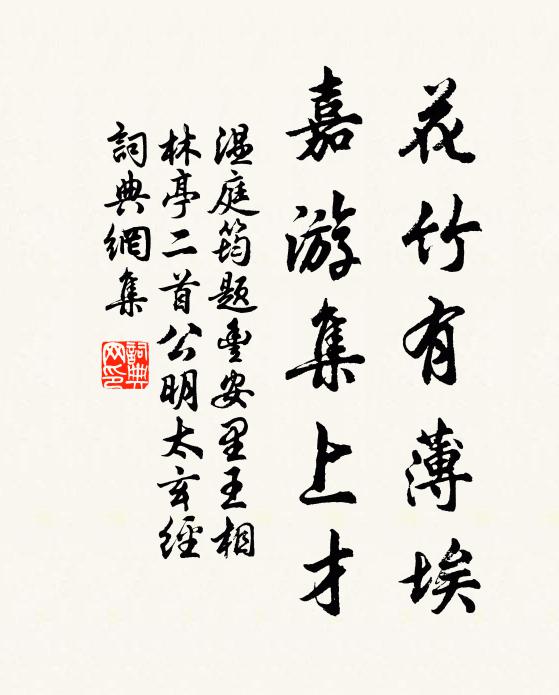 花竹有薄埃
嘉游集上才
温庭筠题豐安里王相
林亭二首公明太玄經
詞典網集
詞典網印